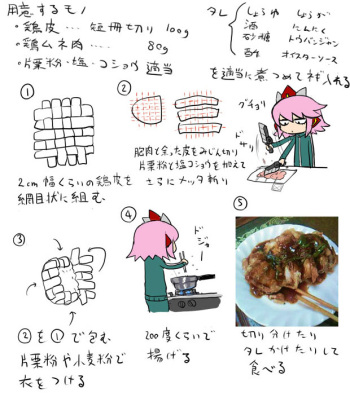 用意するモノ
・鶏皮… 短冊切り 100g
・鶏ムネ肉‥‥ 80g
・片栗粉・塩・コショウ 適当
タレ
しょうゆ しょうが
酒 にんにく
砂糖 トウバンジャン
酢 オイスターソース
を適当に煮つめて
入れる
①
2cm幅くらいの鶏皮を
網目状に組む
②
グチョリ
ドサリ
肥肉と余った皮をみじん切り
片栗粉と塩コショウを加えて
さらにメッタ斬り
③
②を①で包む
片栗粉や小麦粉で
衣をつける
④
ドジャー
200度くらいで
揚げる
⑤
切り分けたり
タレかけたりして
食べる